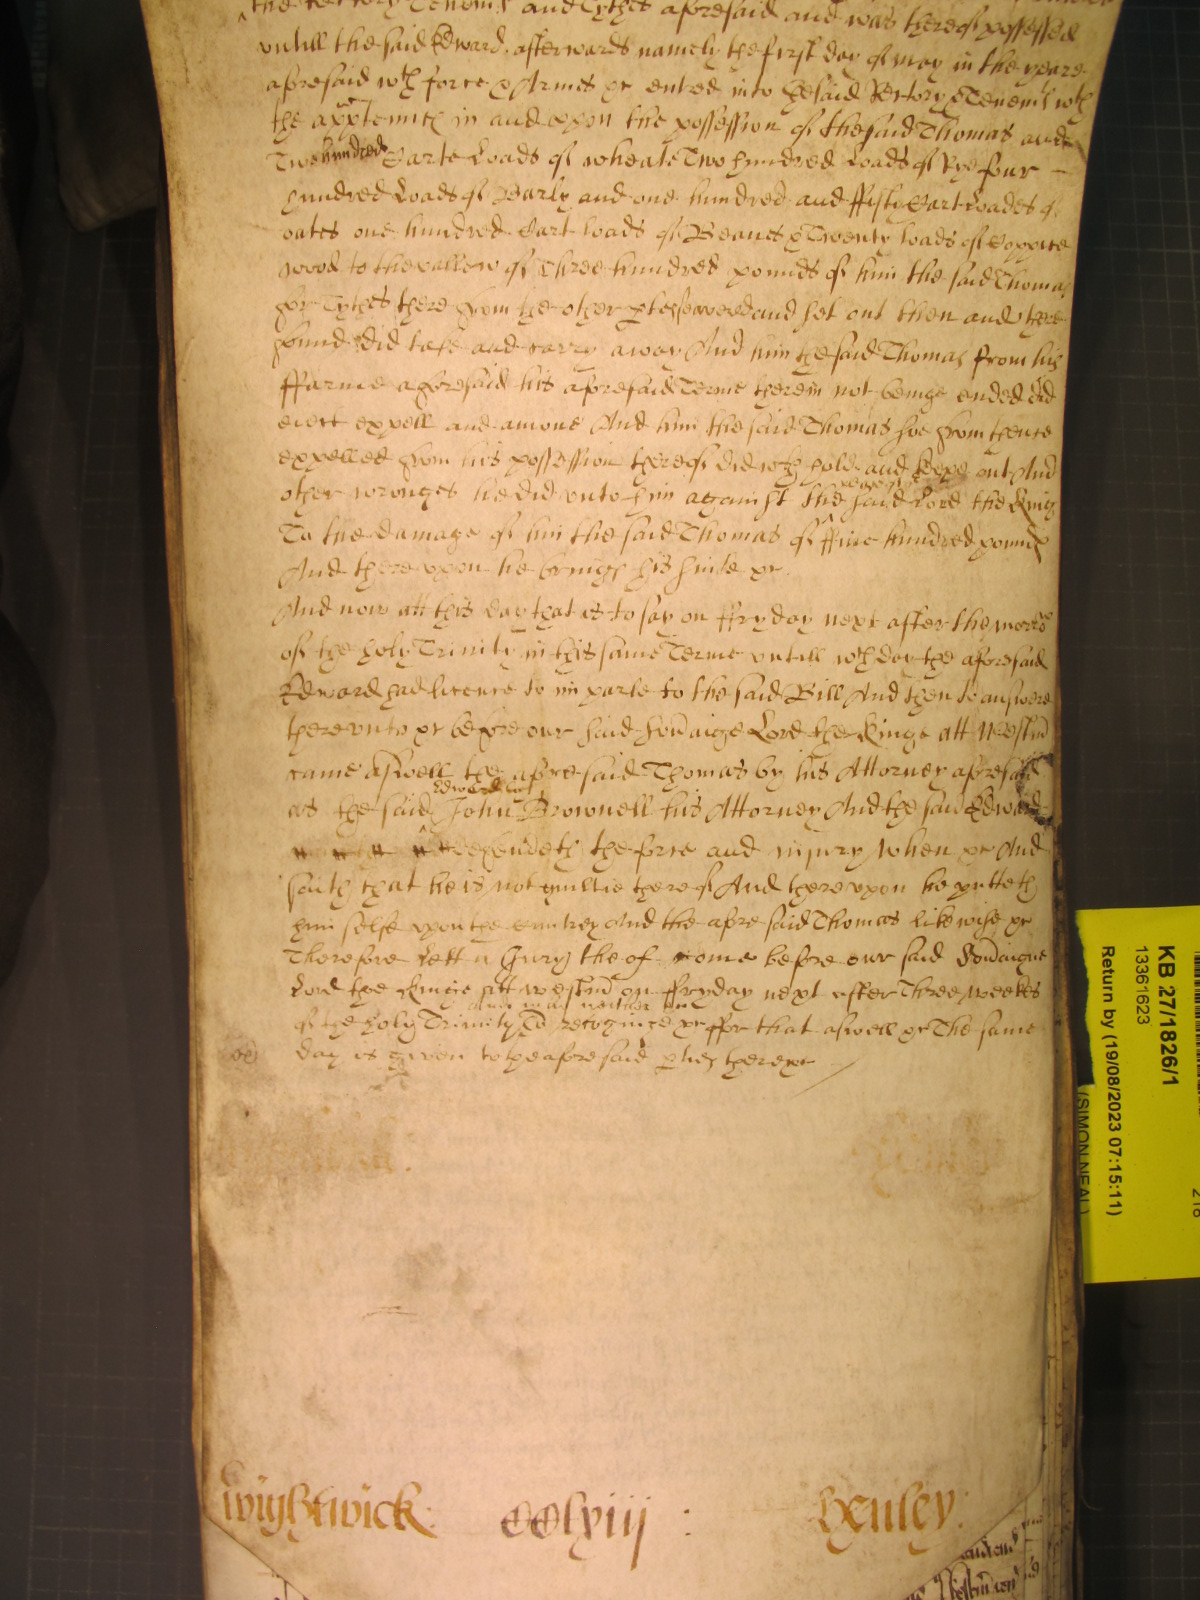 the Rectory Tenemts and Tythes aforesaid and was thereof possessed
untill the said Edward afterwards namely the first day of may in the yeare
aforesaid wth force & Armes &c entred into the said Rectory & Tenemts wth
the apptenncs in and vpon the possession of the said Thomas and
Two hundred Carte Loads of wheate Two hundred Loads of Rye four
hundred Loads of Barly and one hundred and ffifty Cart Loades of
oates one hundred Cart loads of Beanes & Twenty loads of Coppice
wood to the vallew of Three hundred pounds of him the said Thomas
for Tythes there from the other ptes severed and set out then and there
found did take and carry away And him the said Thomas from his
ffarme aforesaid his aforesaid Terme therein not beinge ended did
eiect expell and amove And him the said Thomas soe from thence
expelled from his possession thereof did wth hold and keepe out And
other wronges he did vnto him against the said Lord the King
To the damage of him the said Thomas of ffive hundred pounds
And there vpon he brings his suite &c
And now att this day that is to say on ffryday next after the morrow
of the holy Trinity in this same Terme vntill wch day the aforesaid
Edward had licence to imparle to the said Bill And then to answere
therevnto &c before our said Soveraigne Lord the Kinge att Westmr
came aswell the aforesaid Thomas by his Attorney aforesaid
as the said Edward by John Brownell his Attorney And the said Edward
defendeth the force and injury when &c And
saith that he is not guiltie thereof And therevpon he putteth
him selfe vpon the cuntrey And the aforesaid Thomas likewise &c
Therefore Lett a Jury thereof come before our said Soveraigne
Lord the Kinge att westmr on ffryday next after Three weekes
of the holy Trinity And who neither &c To recognize &c ffor that aswell &c The same
day is given to the aforesaid pties there &c
Wightwick : CClxiij : Henley :
KB 27/1826/1
13361623
Return by (19/08/2023 07:15:11)
(SIMON NEAL)